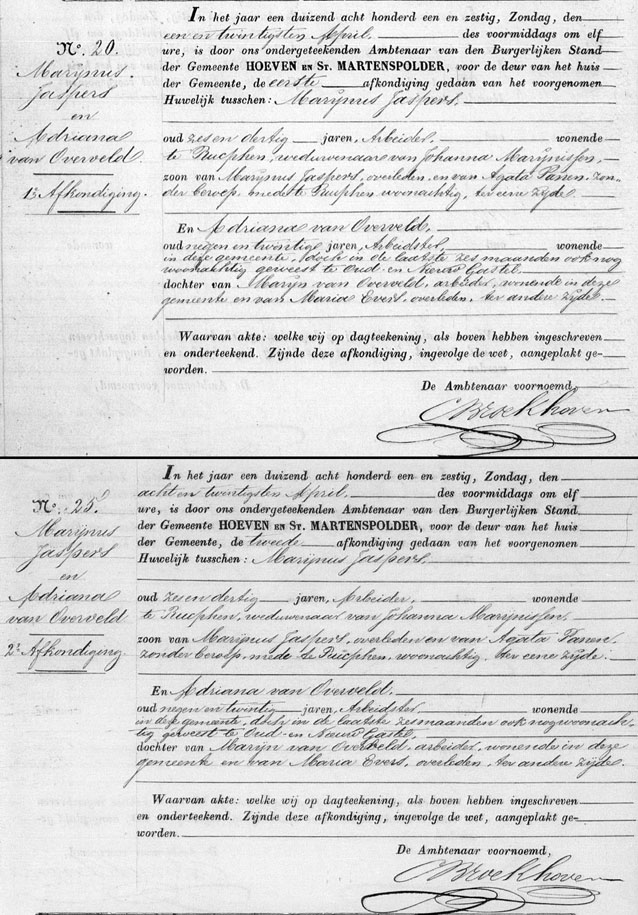 No. 20.
Marijnus
Jaspers
en
Adriana
van Overveld.
1e Afkondiging.
In het jaar een duizend acht honderd een en zestig, Zondag, den
een en twintigsten April. des voormiddags om elf
ure, is door ons ondergeteekenden Ambtenaar van den Burgerlijken Stand
der Gemeente HOEVEN EN ST. MARTENSPOLDER, voor de deur van het huis
der Gemeente, de eerste afkondiging gedaan van het voorgenomen
Huwelijk tusschen: Marijnus Jaspers.
oud zes en dertig jaren, Arbeider, wonende
te Rucphen, weduwenaar van Johanna Marijnissen,
zoon van Marijnus Jaspers, overleden, en van Agata Panen, zon-
der beroep, mede te Rucphen woonachtig, ter eene zijde
En Adriana van Overveld.
oud negen en twintig jaren, Arbeidster, wonende
in deze gemeente, doch in de laatste zes maanden ook nog
woonachtig geweest te Oud en Nieuw Gastel.
dochter van Marijn van Overveld, arbeider, wonende in deze
gemeente en van Maria Evers, overleden, ter andere zijde.
Waarvan akte: welke wij op dagteekening, als boven hebben ingeschreven
en onderteekend. Zijnde deze afkondiging, ingevolge de wet, aangeplakt ge-
worden.
De Ambtenaar voornoemd,
CBroekhoven
No. 25
Marijnus
Jaspers
en
Adriana
van Overveld
2e Afkondiging
In het jaar een duizend acht honderd een en zestig, Zondag, den
acht en twintigsten April. des voormiddags om elf
ure, is door ons ondergeteekenden Ambtenaar van den Burgerlijken Stand
der Gemeente HOEVEN EN ST. MARTENSPOLDER, voor de deur van het huis
der Gemeente, de tweede afkondiging gedaan van het voorgenomen
Huwelijk tusschen: Marijnus Jaspers.
oud zes en dertig jaren, Arbeider, wonende
te Rucphen, weduwenaar van Johanna Marijnissen.
zoon van Marijnus Jaspers, overleden en van Agata Panen.
zonder beroep, mede te Rucphen, woonachtig. ter eene zijde.
En Adriana van Overveld.
oud negen en twintig jaren, Arbeidster wonende
in deze gemeente, doch in de laatste zes maanden ook nog woonach-
tig geweest te Oud en Nieuw Gastel.
dochter van Marijn van Overveld, arbeider, wonende in deze
gemeente en van Maria Evers, overleden. ter andere zijde.
Waarvan akte: welke wij op dagteekening, als boven hebben ingeschreven
en onderteekend. Zijnde deze afkondiging, ingevolge de wet, aangeplakt ge-
worden.
De Ambtenaar voornoemd,
CBroekhoven